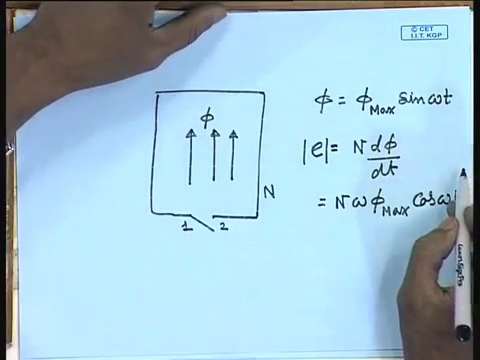 © CET
I.I.T. KGP
ϕ
N
1 2
ϕ = ϕMax sin ωt
|e| = N dϕ/dt
= N ω ϕMax Cos ω